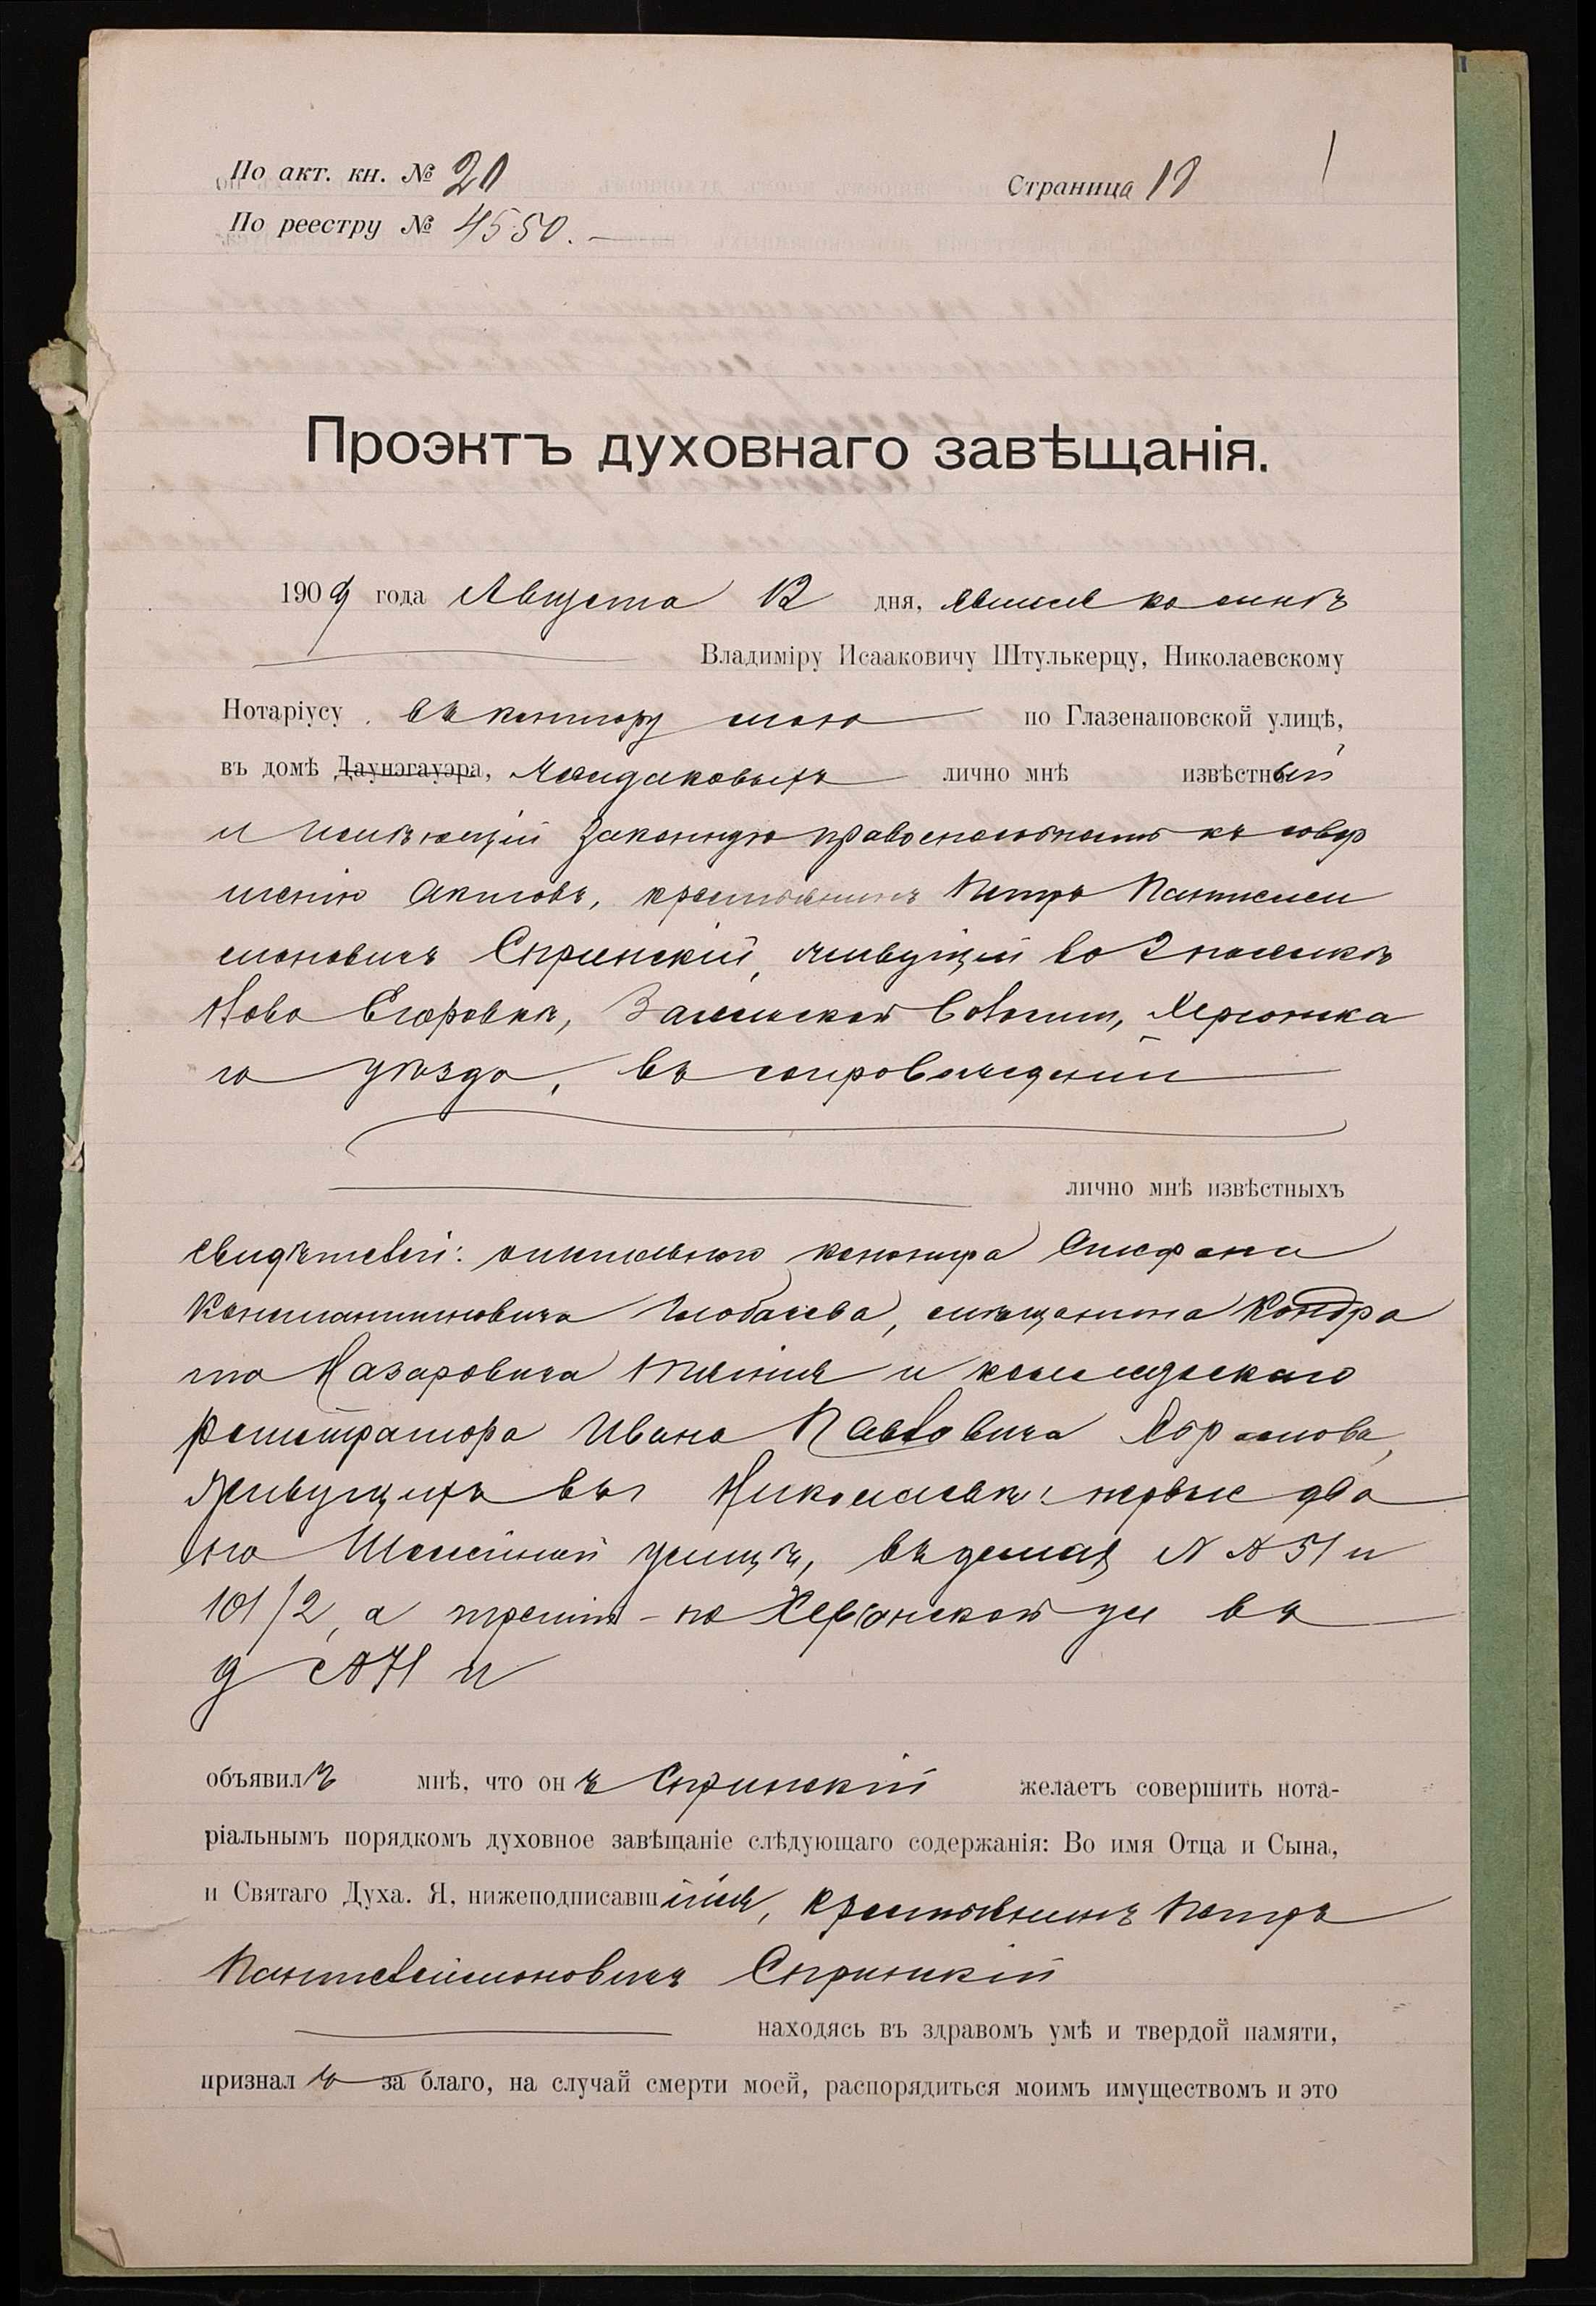 По акт. кн. № 20
Страница 18
1
По реестру № 4550.
Проэктъ духовнаго завѣщанія.
1909 года Августа 12 дня, явился ко мнѣ
Владиміру Исааковичу Штулькерцу, Николаевскому
Нотаріусу въ контору мою по Глазенаповской улицѣ,
въ домѣ Даунэгауэра, лично мнѣ извѣстный
и имѣющій законную правоспособность къ совер
шенію актовъ, крестьянинъ Петръ Пантелей
моновичъ Скрынскій, живущій во 2 поселкѣ
Ново Егоровкѣ, волости, Херсонска
го уѣзда, въ сопровожденіи
лично мнѣ извѣстныхъ
свидѣтелей: Стефана
Константиновича мѣщанина Кондра
та Назаровича и коллежскаго
регистратора Ивана Павловича
живущихъ въ Николаевѣ: первые два
по улицѣ, въ домахъ №№ 51 и
101/2, а третій - по Херсонской ул въ
д №71 и
объявилъ мнѣ, что онъ Скрынскій желаетъ совершить нота-
ріальнымъ порядкомъ духовное завѣщаніе слѣдующаго содержанія: Во имя Отца и Сына,
и Святаго Духа. Я, нижеподписавшійся, крестьянинъ Петръ
Пантелеймоновичъ Скрынскій
находясь въ здравомъ умѣ и твердой памяти,
призналъ за благо, на случай смерти моей, распорядиться моимъ имуществомъ и это